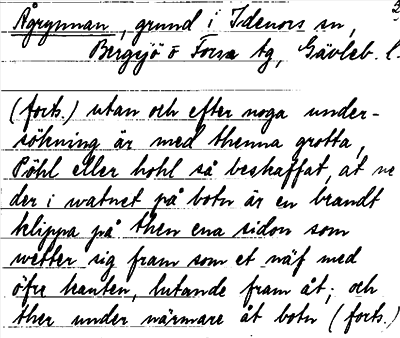 Ågrynnan, grund i Idenors sn,
Bergsjö o Forsa tg, Gävleb. l.
(forts.) utan och efter noga under-
sökning är med thenna grotta,
Pöhl eller hohl så beskaffat, at ne
der i watnet på botn är en brandt
klippa på then ena sidon som
wetter sig fram som et näf med
öfre kanten, lutande fram åt; och
ther under närmare åt botn (forts.)